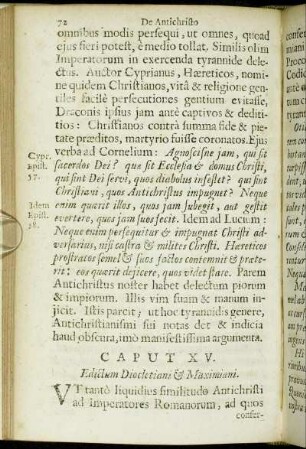 72 De Antichristo
omnibus modis persequi, ut omnes, quoad
ejus fieri potest, è medio tollat. Similis olim
Imperatorum in exercenda tyrannide dele-
ctus. Auctor Cyprianus, Hæreticos, nomi-
ne quidem Christianos, vitâ & religione gen-
tiles facilè persecutiones gentium evitasse,
Draconis ipsius jam antè captivos & dediti-
tios: Christianos contrà summa fide & pie-
tate præditos, martyrio fuisse coronatos. Ejus
verba ad Cornelium: Agnoscisne jam, qui sit
Cypr.
Epist.
57.
sacerdos Dei? quæ sit Ecclesia & domus Christi,
qui sint Dei servi, quos diabolus infestet? qui sint
Christiani, quos Antichristus impugnet? Neque
enim quærit illos, quos jam subegit, aut gestit
evertere, quos jam suos fecit. Idem ad Lucum:
Idem
Epist.
58.
Neque enim persequitur & impugnat Christi ad-
versarius, nisi castra & milites Christi. Hæreticos
prostratos semel & suos factos contemnit & præte-
rit: eos quærit dejicere, quos videt stare. Parem
Antichristus noster habet delectum piorum
& impiorum. Illis vim suam & manum in-
jicit. Istis parcit; ut hoc tyrannidis genere,
Antichristianismi sui notas det & indicia
haud obscura, imò manifestissima argumenta.
CAPUT XV.
Edictum Diocletiani & Maximiani.
UT tantò liquidiùs similitudo Antichristi
ad Imperatores Romanorum, ad quos
confor-